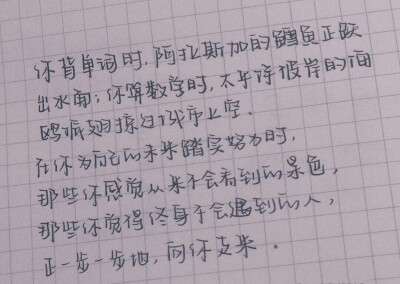 你背单词时，阿拉斯加的鳕鱼正跃
出水面；你算数学时，太平洋彼岸的海
鸥振翅掠过城市上空．
在你为自己的未来踏实努力时，
那些你感觉从来不会看到的景色，
那些你觉得终身不会遇到的人，
正一步一步地，向你走来．